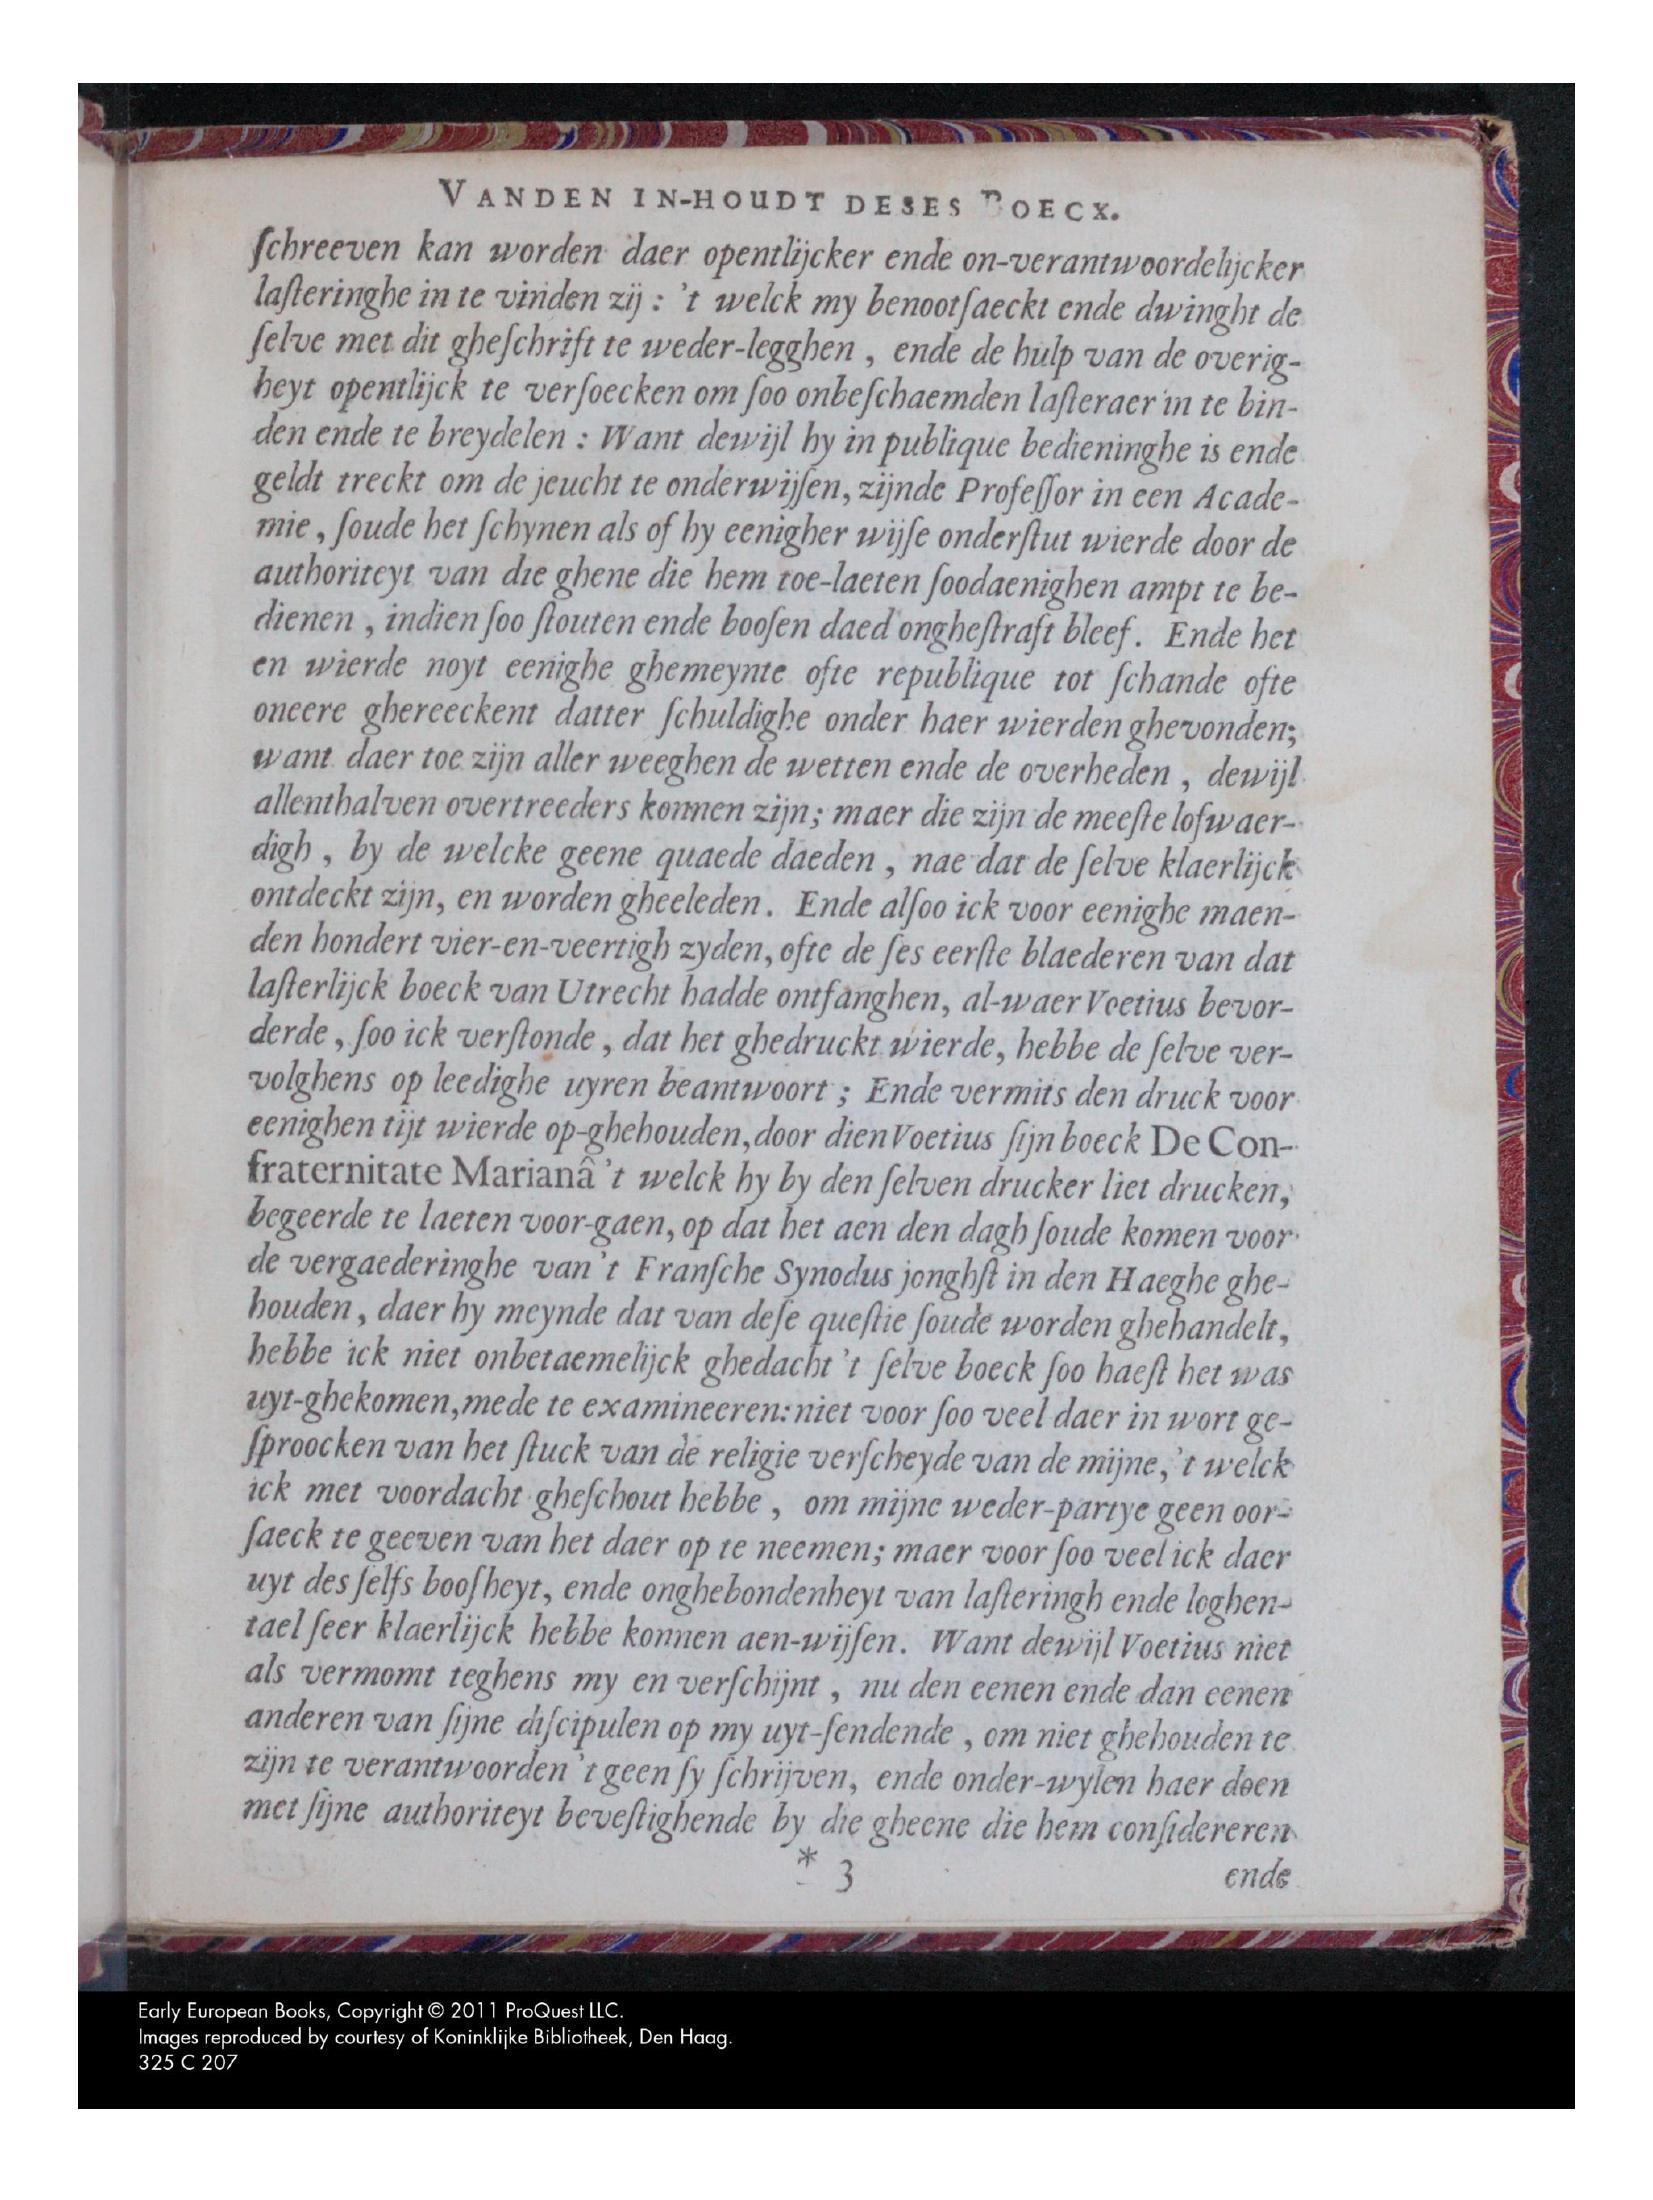 VANDEN IN-HOUDT DESES BOECX.
ſchreeven kan worden daer opentlijcker ende on-verantwoordelijcker
laſteringhe in te vinden zij : 't welck my benootſaeckt ende dwinght de
ſelve met dit gheſchrift te weder-legghen , ende de hulp van de overig-
heyt opentlijck te verſoecken om ſoo onbeſchaemden laſteraer in te bin-
den ende te breydelen : Want dewijl hy in publique bedieninghe is ende
geldt treckt om de jeucht te onderwijſen, zijnde Profeſſor in een Acade-
mie , ſoude het ſchynen als of hy eenigher wijſe onderſtut wierde door de
authoriteyt van die ghene die hem toe-laeten ſoodaenighen ampt te be-
dienen , indien ſoo ſtouten ende booſen daed ongheſtraft bleef. Ende het
en wierde noyt eenighe ghemeynte ofte republique tot ſchande ofte
oneere ghereeckent datter ſchuldighe onder haer wierden ghevonden;
want daer toe zijn aller weeghen de wetten ende de overheden , dewijl
allenthalven overtreeders konnen zijn; maer die zijn de meeſte lofwaer-
digh , by de welcke geene quaede daeden , nae dat de ſelve klaerlijck
ontdeckt zijn, en worden gheeleden. Ende alſoo ick voor eenighe maen-
den hondert vier-en-veertigh zyden, ofte de ſes eerſte blaederen van dat
laſterlijck boeck van Utrecht hadde ontfanghen, al-waer Voetius bevor-
derde , ſoo ick verſtonde , dat het ghedruckt wierde, hebbe de ſelve ver-
volghens op leedighe uyren beantwoort ; Ende vermits den druck voor
eenighen tijt wierde op-ghehouden, door dien Voetius ſijn boeck De Con-
fraternitate Marianâ 't welck hy by den ſelven drucker liet drucken,
begeerde te laeten voor-gaen, op dat het aen den dagh ſoude komen voor
de vergaederinghe van 't Franſche Synodus jonghſt in den Haeghe ghe-
houden , daer hy meynde dat van deſe queſtie ſoude worden ghehandelt,
hebbe ick niet onbetaemelijck ghedacht 't ſelve boeck ſoo haeſt het was
uyt-ghekomen, mede te examineeren: niet voor ſoo veel daer in wort ge-
ſproocken van het ſtuck van de religie verſcheyde van de mijne, 't welck
ick met voordacht gheſchout hebbe , om mijne weder-partye geen oor-
ſaeck te geeven van het daer op te neemen; maer voor ſoo veel ick daer
uyt des ſelfs booſheyt, ende onghebondenheyt van laſteringh ende loghen-
tael ſeer klaerlijck hebbe konnen aen-wijſen. Want dewijl Voetius niet
als vermomt teghens my en verſchijnt , nu den eenen ende dan eenen
anderen van ſijne diſcipulen op my uyt-ſendende , om niet ghehouden te
zijn te verantwoorden 't geen ſy ſchrijven, ende onder-wylen haer doen
met ſijne authoriteyt beveſtighende by die gheene die hem conſidereren
* 3 ende
Early European Books, Copyright © 2011 ProQuest LLC.
Images reproduced by courtesy of Koninklijke Bibliotheek, Den Haag.
325 C 207